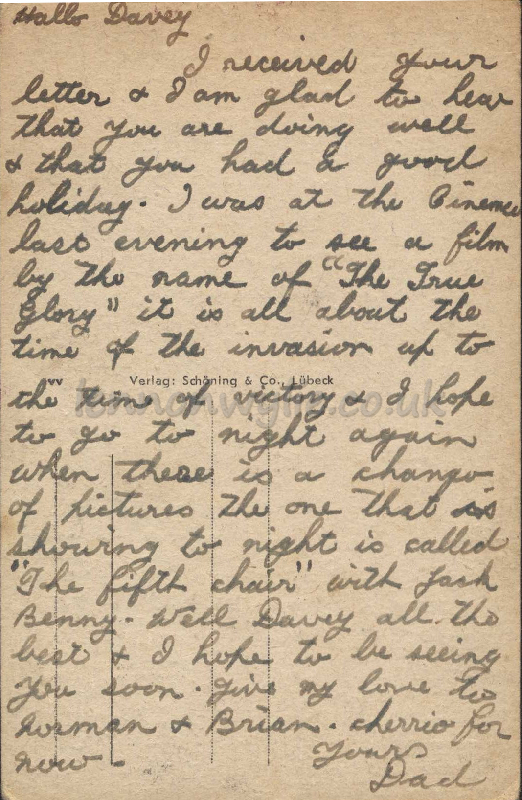 Hallo Davey
I received your
letter & I am glad to hear
that you are doing well
& that you had a good
holiday. I was at the Cinema
last evening to see a film
by the name of "The True
Glory" it is all about the
time of the invasion up to
Verlag: Schöning & Co., Lübeck
the time of victory & I hope
to go to night again
when there is a change
of pictures the one that is
showing to night is called
"The fifth chair" with Jack
Benny. Well Davey all the
best & I hope to be seeing
you soon. Give my love to
Norman & Brian. cherrio for
now.
Yours
Dad